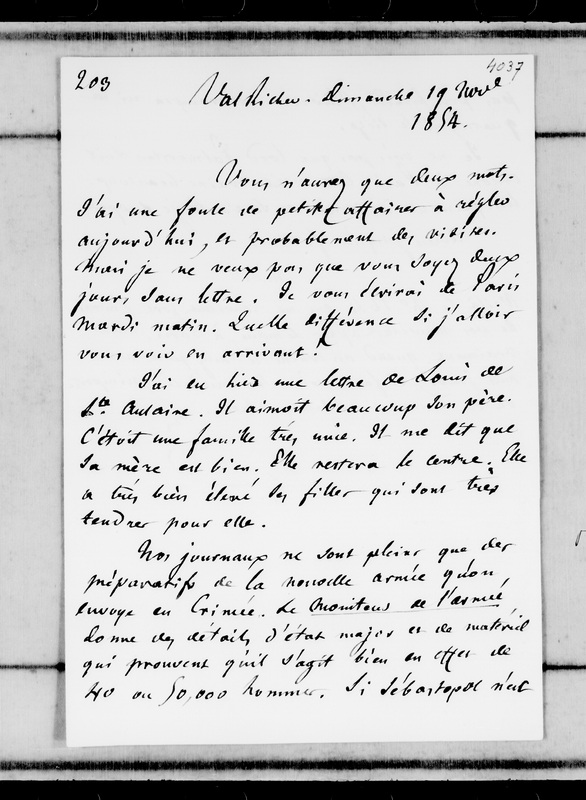 203
4037
Val Richer. Dimanche 19 Nov.e
1854.
Vous n'aurez que deux mots.
J'ai une foule de petites affaires à régler
aujourd'hui, et probablement des visites.
Mais je ne veux pas que vous soyez deux
jours sans lettre. Je vous écrirai de Paris
Mardi matin. Quelle différence si j'allois
vous voir en arrivant !
J'ai eu hier une lettre de Louis de
Ste Aulaire. Il aimoit beaucoup son père.
C'étoit une famille très unie. Il me dit que
sa mère est bien. Elle restera le centre. Elle
a très bien élevé ses filles qui sont très
tendres pour elle.
Nos journaux ne sont pleins que des
préparatifs de la nouvelle armée qu'on
envoye en Crimée. Le Moniteur de l'armée
donne des détails d'état major et de matériel
qui prouvent qu'il s'agit bien en effet de
40 ou 50,000 hommes. Si Sébastopol n'est